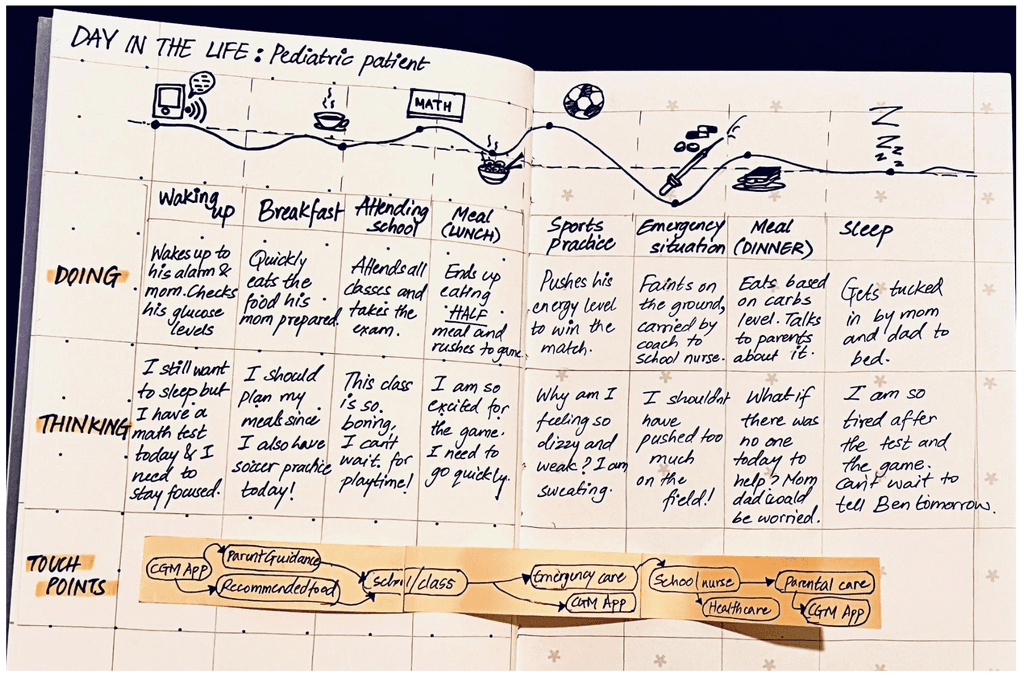 DAY IN THE LIFE: Pediatric patient
MATH
Z
Z
Z z
z z
Waking
up
Breakfast
Attending
school
Meal
(LUNCH)
Sports
practice
Emergency
situation
Meal
(DINNER)
Sleep
DOING
Wakes up to
his alarm &
mom. Checks
his glucose
levels
Quickly
eats the
food his
mom prepared.
Attends all
classes and
takes the
exam.
Ends up
eating
HALF
meal and
rushes to game
Pushes his
energy level
to win the
match.
Faints on
the ground,
carried by
coach to
school nurse.
Eats based
on carbs
level. Talks
to parents
about it.
Gets tucked
in by mom
and dad to
bed.
THINKING
I still want
to sleep but
I have a
math test
today & I
need to
stay focused.
I should
plan my
meals since
I also have
soccer practice
today!
This class
is so
boring,
I can't
wait for
playtime!
I am so
excited for
the game.
I need to
go quickly.
Why am I
feeling so
dizzy and
weak? I am
sweating.
I shouldn't
have
pushed too
much
on the
field!
What if
there was
no one
today to
help? Mom
dad would
be worried.
I am so
tired after
the test and
the game.
Can't wait to
tell Ben tomorrow.
TOUCH
POINTS
CGM App
Parent Guidance
Recommended food
School/class
Emergency care
CGM App
School nurse
Healthcare
Parental care
CGM App